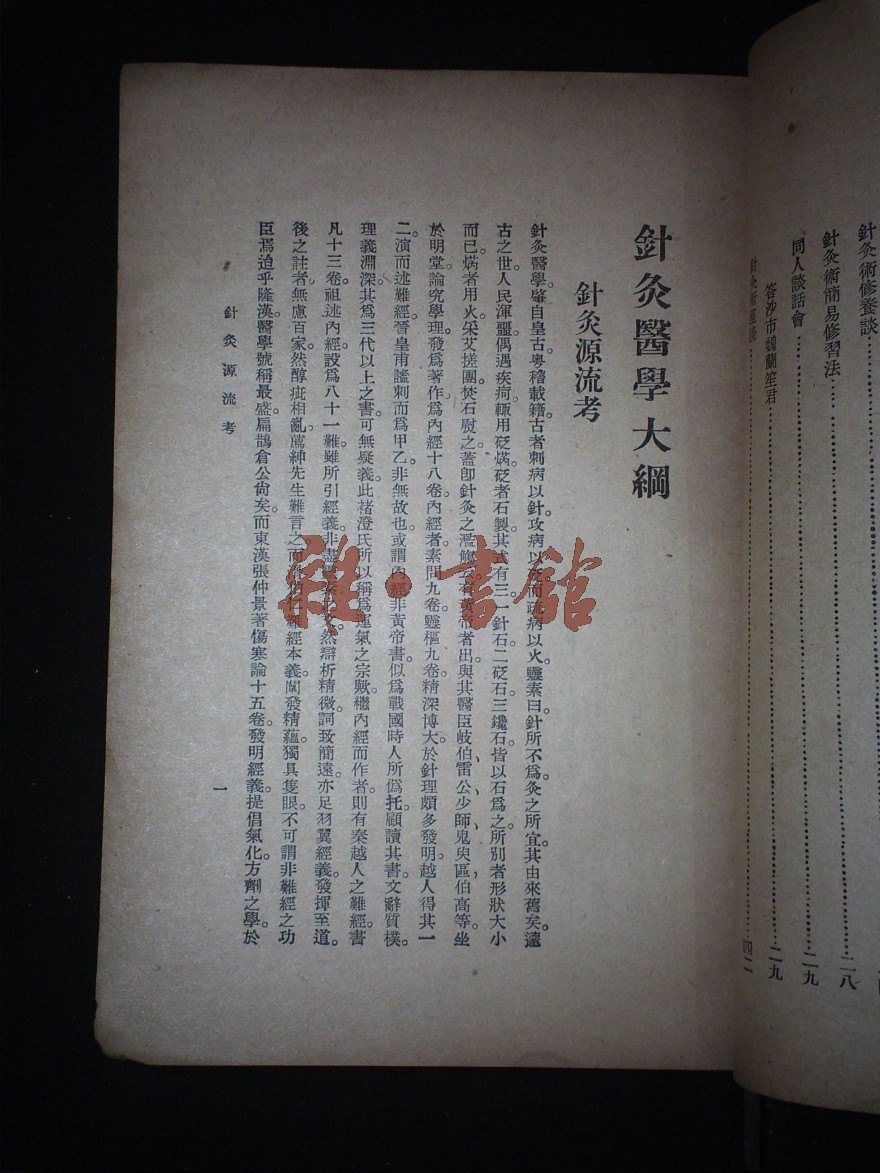 針灸術修養談
針灸術簡易修習法……二八
同人談話會……二九
答沙市魏蘭笙君……二九
針灸術 四二
針灸醫學大綱
針灸源流考
針灸醫學肇自皇古。粤稽載籍。古者刺病以針。攻病以 而 病以火。靈素曰。針所不爲。灸之所宜。其由來舊矣。邃
古之世。人民渾噩。偶遇疾疴。輒用砭焫。砭者石製。其式有三。一針石。二砭石。三鑱石。皆以石爲之。所別者形狀大小
而已。焫者用火。采艾搓團。焚石熨之。蓋卽針灸之濫觴云。有黃帝者出。與其醫臣岐伯、雷公、少師、鬼臾區、伯高等。坐
於明堂。論究學理。發爲著作。爲內經十八卷。內經者。素問九卷。靈樞九卷。精深博大。於針理頗多發明。越人得其一
二。演而述難經。晉皇甫謐刺而爲甲乙。非無故也。或謂內經非黃帝書。似爲戰國時人所僞托。顧讀其書。文辭質樸。
理義淵深。其爲三代以上之書。可無疑義。此褚澄氏所以稱爲運氣之宗歟。繼內經而作者。則有秦越人之難經。書
凡十三卷。祖述內經。設爲八十一難。雖所引經義。非盡 然辯析精微。詞致簡遠。亦足羽翼經義。發揮至道。
後之註者。無慮百家。然醇疵相亂。薦紳先生難言之。而 仁難經本義。闡發精蘊。獨具隻眼。不可謂非難經之功
臣焉。迨乎隆漢。醫學號稱最盛。扁鵲倉公尙矣。而東漢張仲景著傷寒論十五卷。發明經義。提倡氣化。方劑之學。於
針灸源流考
一
雜·書館